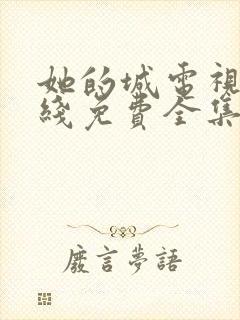 她的城電視
綫免費全集
廢言夢語